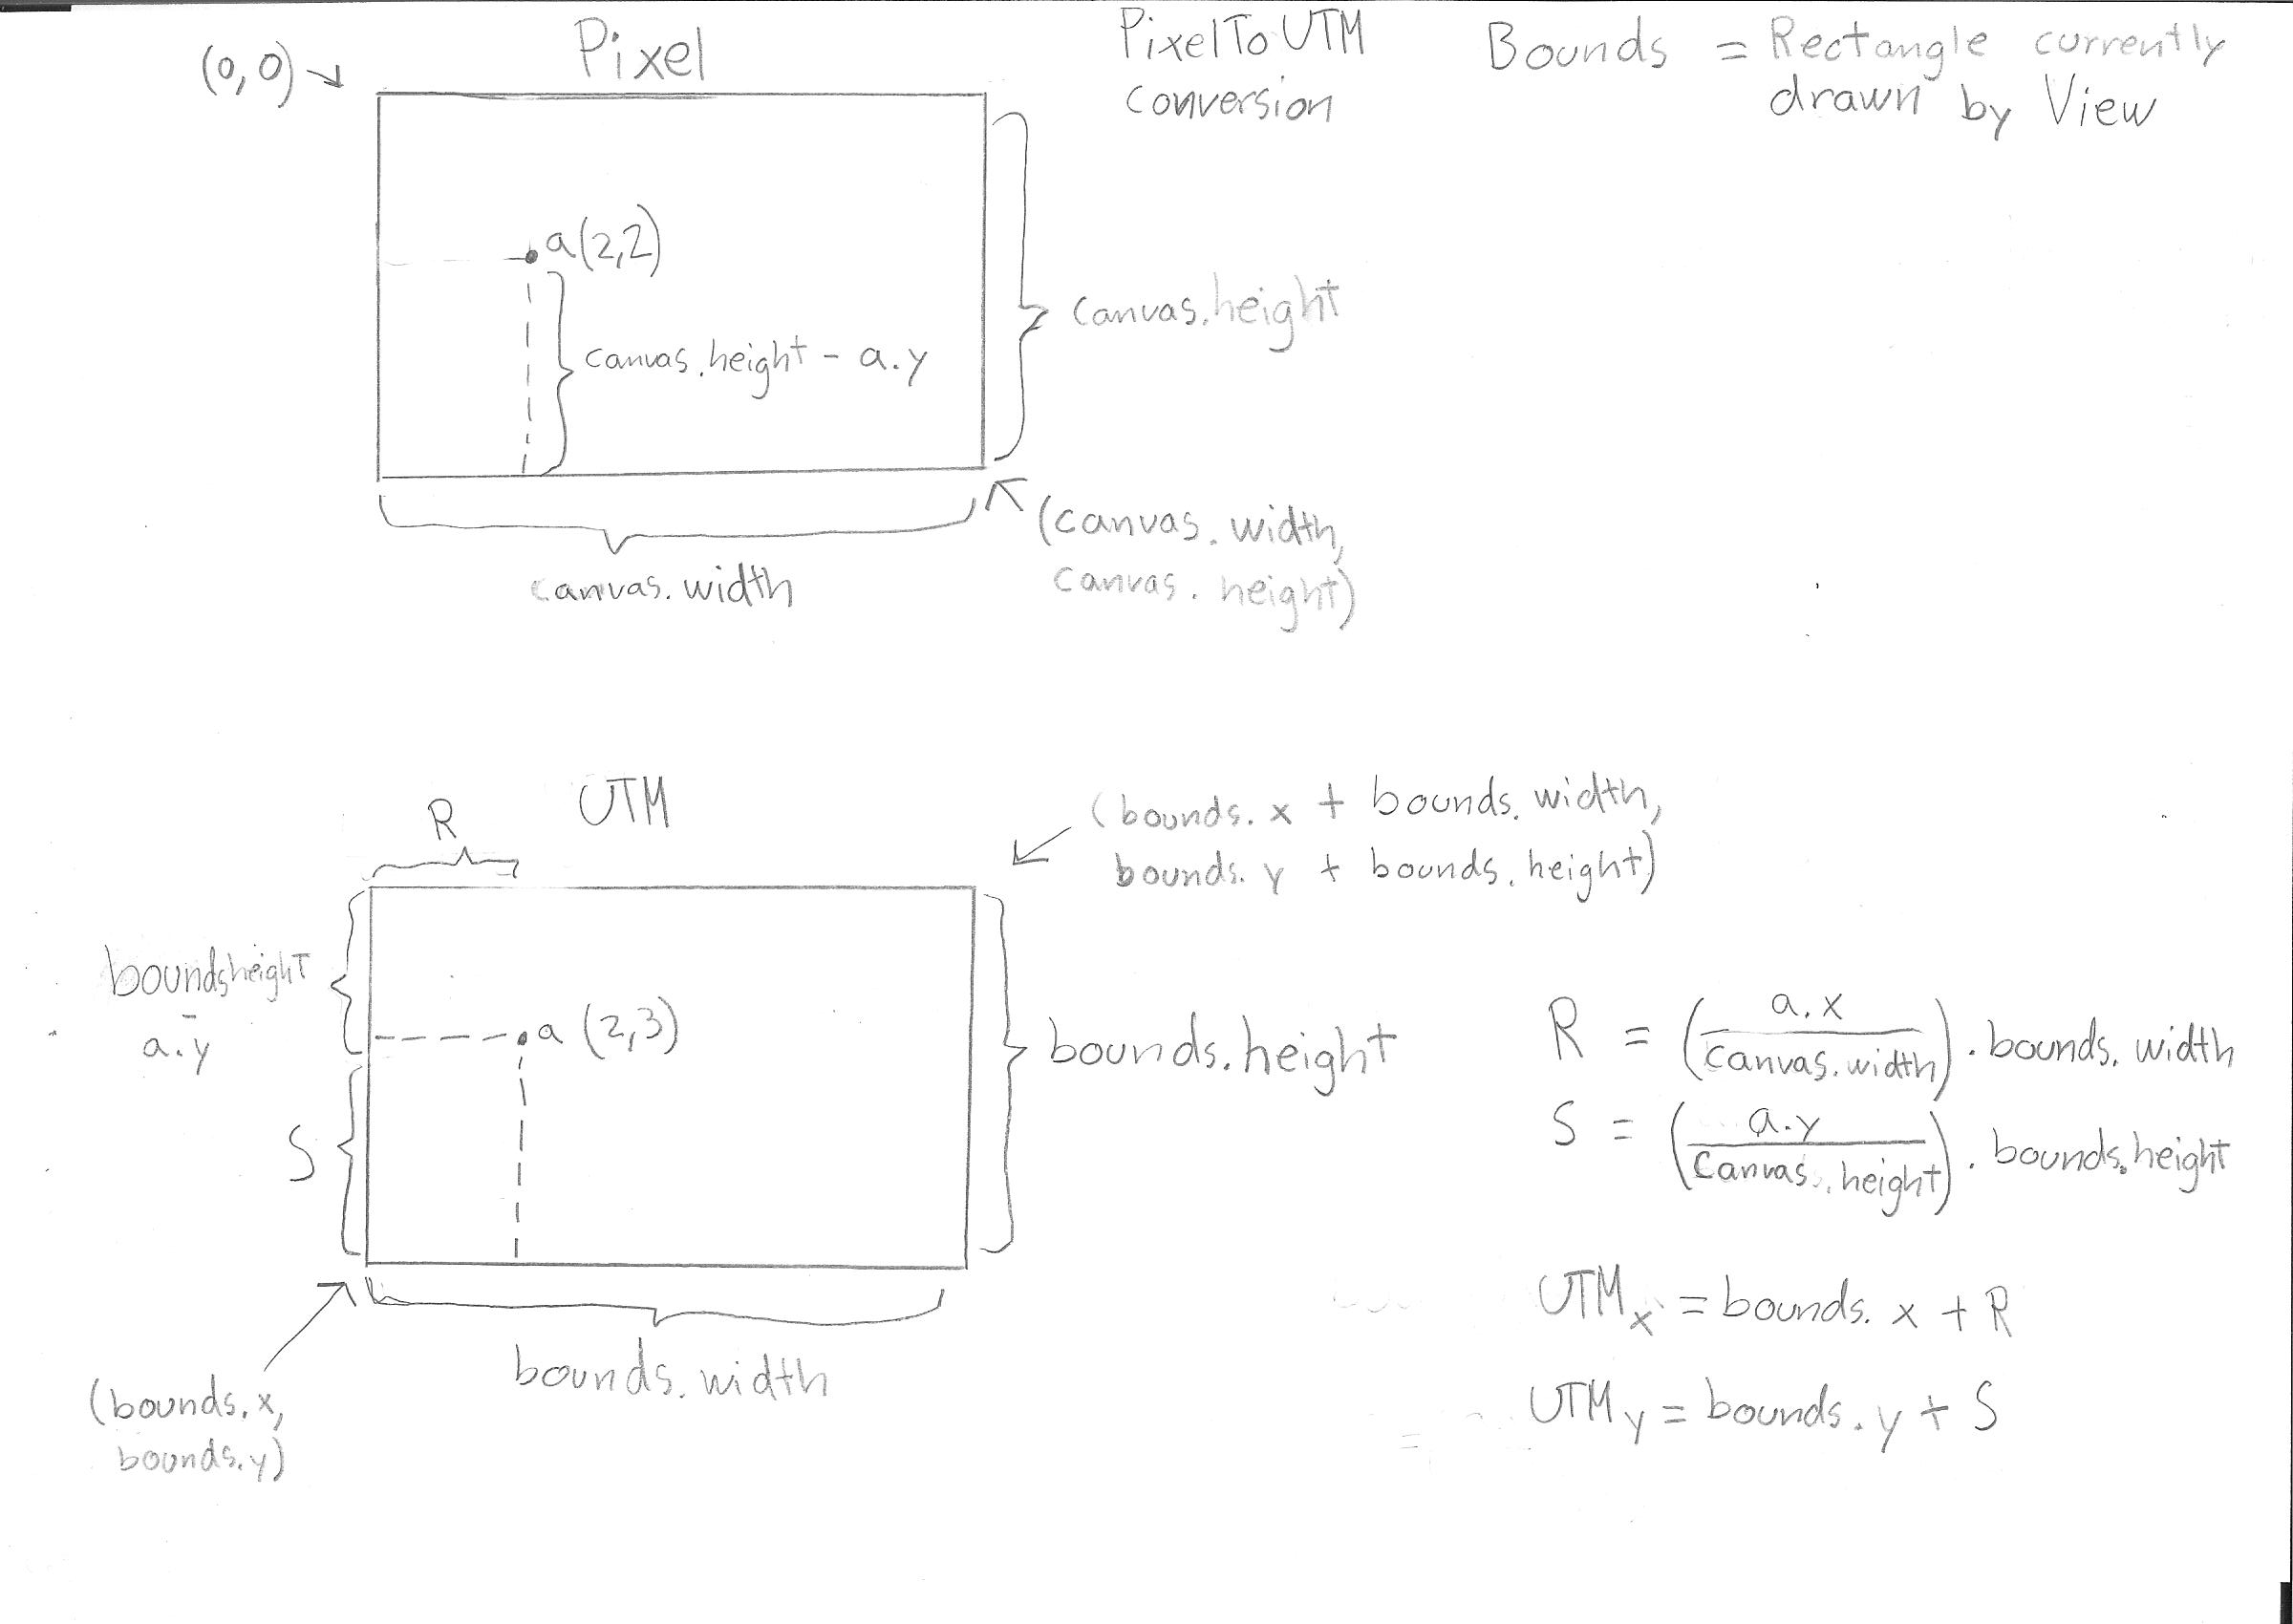 (0,0)
Pixel
PixelToUTM
conversion
Bounds = Rectangle currently
drawn by View
a(2,2)
canvas.height - a.y
canvas.height
(canvas.width,
canvas.height)
canvas.width
UTM
R
(bounds.x + bounds.width,
bounds.y + bounds.height)
boundsheight
-
a.y
a (2,3)
S
bounds.height
bounds.width
(bounds.x,
bounds.y)
R = (a.x / canvas.width) . bounds.width
S = (a.y / canvas.height) . bounds.height
UTMx = bounds.x + R
UTMy = bounds.y + S